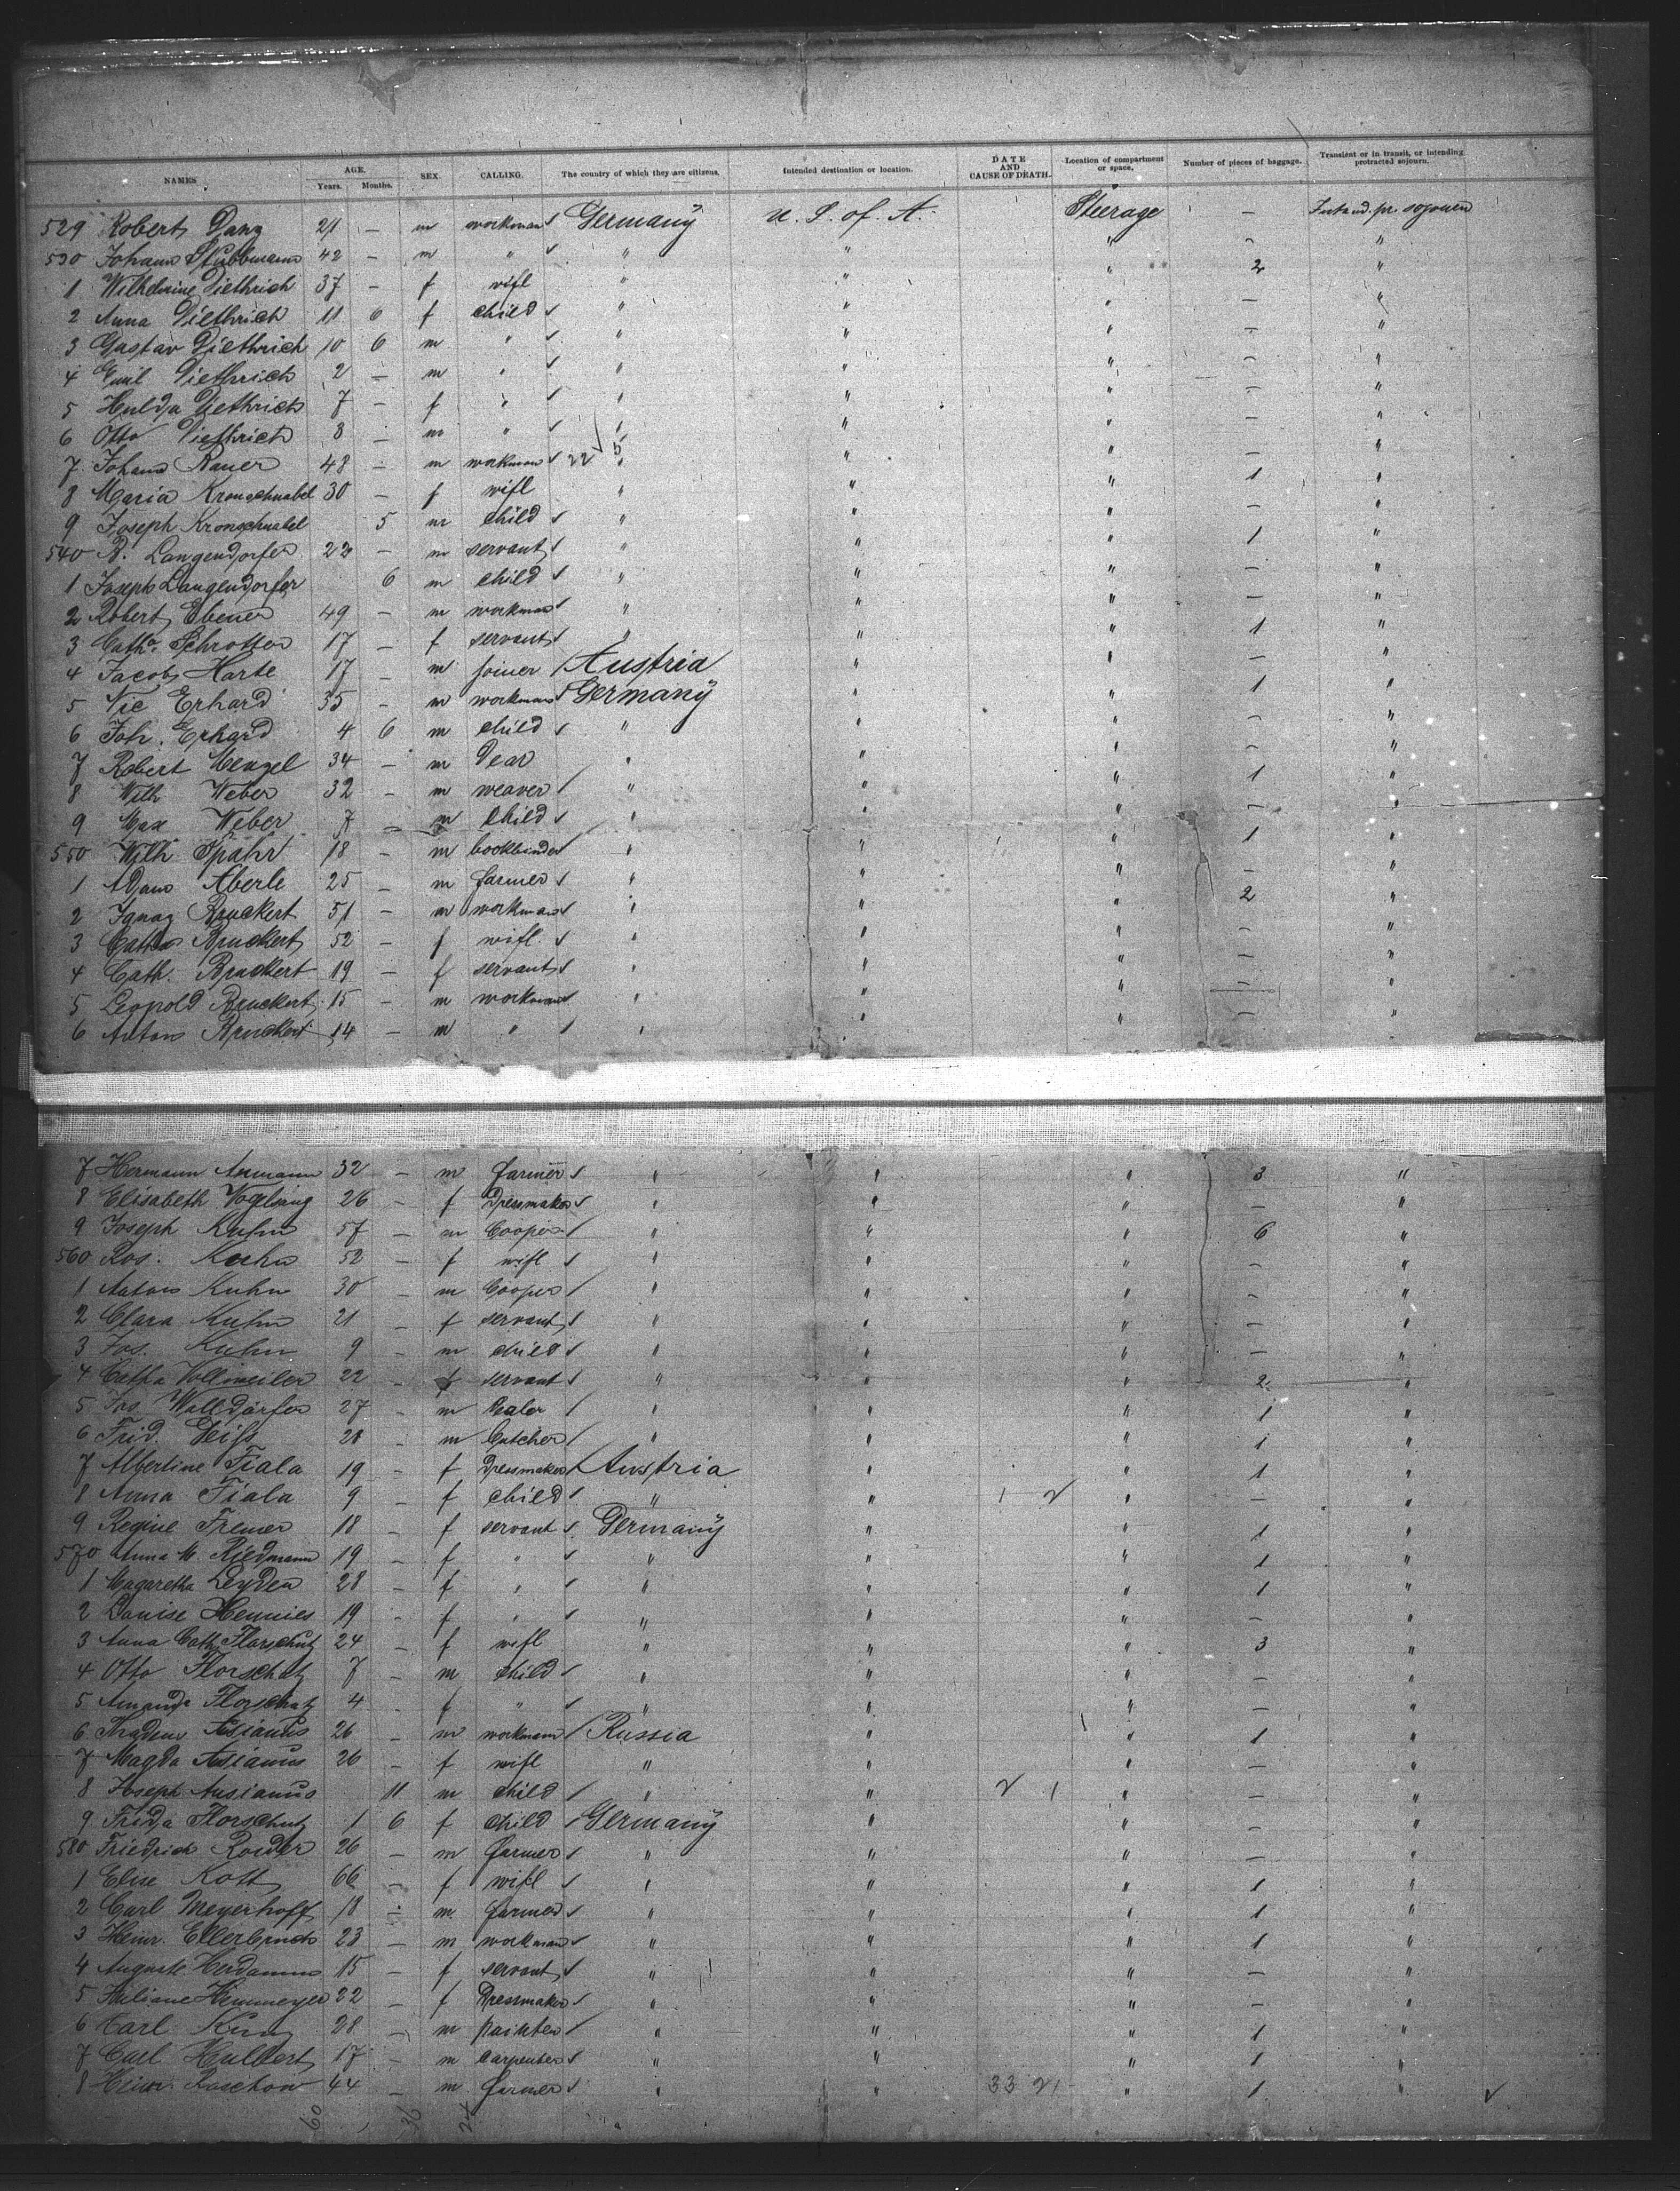 NAMES AGE. Years. Months. SEX. CALLING. The country of which they are citizens. Intended destination or location. DATE AND CAUSE OF DEATH. Location of compartment or space. Number of pieces of baggage. Transient or in transit, or intending protracted sojourn.
529 Robert Danz 21 — m workman Germany U. S. of. A. Steerage —
530 Johann Stubbmann 42 — m " " " " — "
1 Wilhelmine Diethrich 37 — f wife " " " 2 "
2 Anna Diethrich 11 6 f child " " " — "
3 Gustav Diethrich 10 6 m " " " " — "
4 Emil Diethrich 2 — m " " " " — "
5 Hulda Diethrich 7 — f " " " " — "
6 Otto Diethrich 8 — m " " " " — "
7 Johann Bauer 48 — m workman 22 5 " " " — "
8 Maria Kronschnabel 30 — f wife " " " 1 "
9 Joseph Kronschnabel 5 m child " " " — "
540 Langendorfer 22 — m servant " " " 1 "
1 Joseph Langendorfer 6 m child " " " — "
2 Robert Ebener 49 — m workman " " " — "
3 Catha Schrotter 17 — f servant " " " 1 "
4 Jacob Harte 17 — m joiner Austria " " — "
5 Nic Erhard 35 — m workman Germany " " 1 "
6 Joh. Erhard 4 6 m child " " " — "
7 Robert Menzel 34 — m " " " — "
8 Wilh Weber 32 — m weaver " " " 1 "
9 Max Weber 7 — m child " " " — "
550 Wilh Spähr 18 — m bookbinder " " " 1 "
1 Adam Aberle 25 — m farmer " " " — "
2 Ignaz Bruckert 51 — m workman " " " 2 "
3 Catha Bruckert 52 — f wife " " " — "
4 Cath. Bruckert 19 — f servant " " " — "
5 Leopold Bruckert 15 — m workman " " " — "
6 Anton Bruckert 14 — m " " " " — "
7 Hermann Aumann 32 — m farmer " " " 3 "
8 Elisabeth Vogelsang 26 — f Dressmaker " " " — "
9 Joseph Kuhn 57 — m Cooper " " " 6 "
560 Ros. Kuhn 52 — f wife " " " — "
1 Anton Kuhn 30 — m Cooper " " " — "
2 Clara Kuhn 21 — f servant " " " — "
3 Jos. Kuhn 9 — m child " " " — "
4 Catha Vollweiler 22 — f servant " " " 2 "
5 Jos. Walldörfer 27 — m " " " 1 "
6 Frid. 28 — m butcher " " " 1 "
7 Albertine Fiala 19 — f Dressmaker Austria " " 1 "
8 Anna Fiala 9 — f child " " 1 2 " — "
9 Regine Fremer 18 — f servant Germany " " 1 "
570 Anna M. Riedmann 19 — f " " " " 1 "
1 Magaretha Leyden 28 — f " " " " 1 "
2 Louise Hennies 19 — f " " " " — "
3 Anna Cath. Florschutz 24 — f wife " " " 3 "
4 Otto Florschutz 7 — m child " " " — "
5 Amanda Florschutz 4 — f " " " " — "
6 26 — m workman Russia " " 1 "
7 Magda 26 — f wife " " " — "
8 Joseph 11 m child " " 2 1 " — "
9 Frida Florschutz 1 6 f child Germany " " — "
580 Friedrich Roeder 26 — m farmer " " " — "
1 Elise Kott 66 — f wife " " " 1 "
2 Carl Meyerhoff 18 — m farmer " " " 1 "
3 Heinr. Ellerbruch 23 — m workman " " " 1 "
4 Auguste Herdamm 15 — f servant " " " — "
5 Juliane Hemmeyer 22 — f Dressmaker " " " — "
6 Carl 28 — m painter " " " 1 "
7 Carl Hulbert 17 — m carpenter " " " 1 "
8 Heinr. Raschow 44 — m farmer " " 33 21 " 1 "
60 36 24